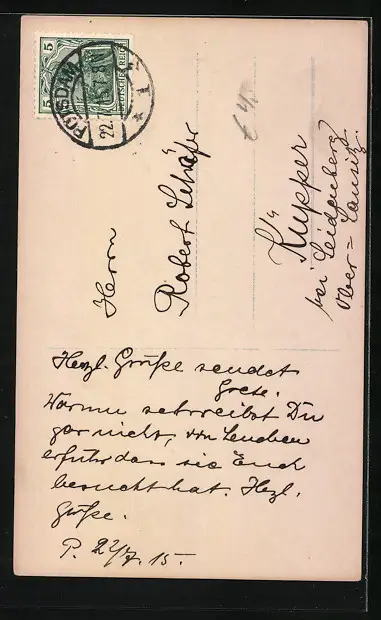 5
5
DEUTSCHES REICH
POTSDAM
1
22.7.15.7-8N
Herrn
Robert Schäfer
Küpper
bei Seidenberg
Ober=Lausitz.
Herzl. Grüße sendet
Grete.
Warum schreibst Du
gar nicht, von Lenchen
erfuhr das sie Euch
besucht hat. Hezl.
Grüße.
P. 22/7. 15.